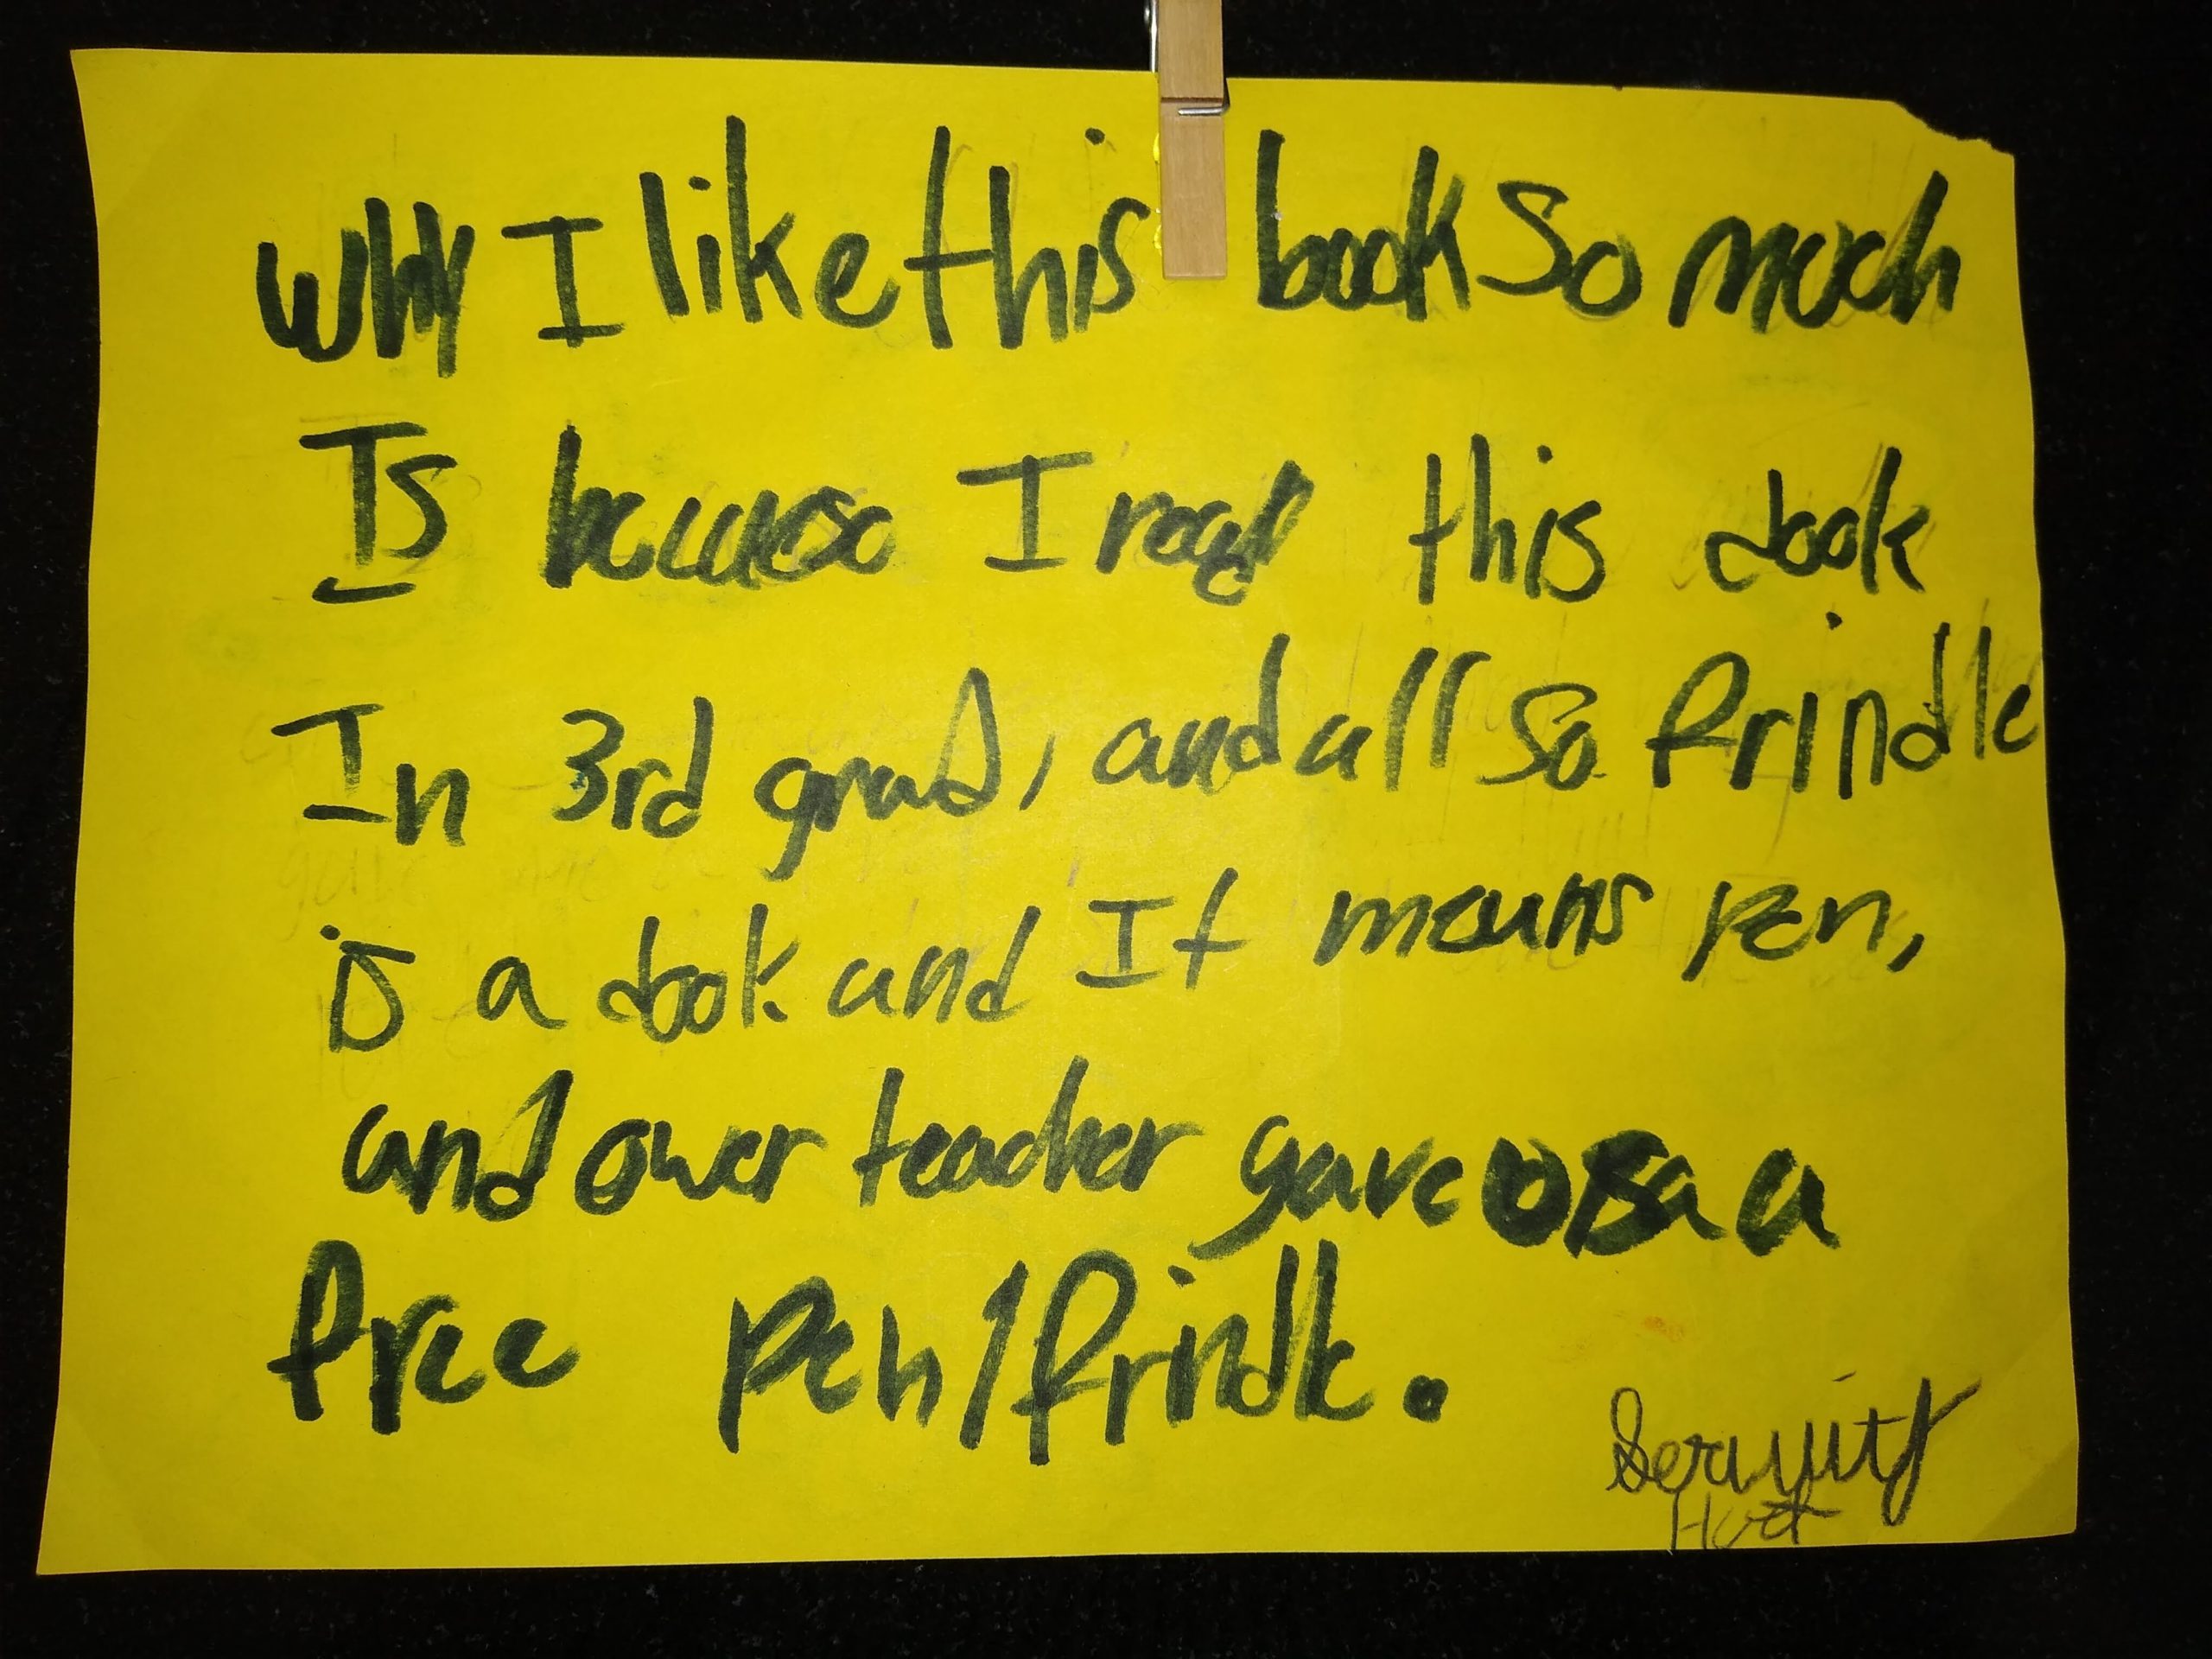 Why I like this book So much
Is because I read this dook
In 3rd grad, and all so frindle
is a dook and It means pen,
and ower teacher gave us a
free pen/frindle.